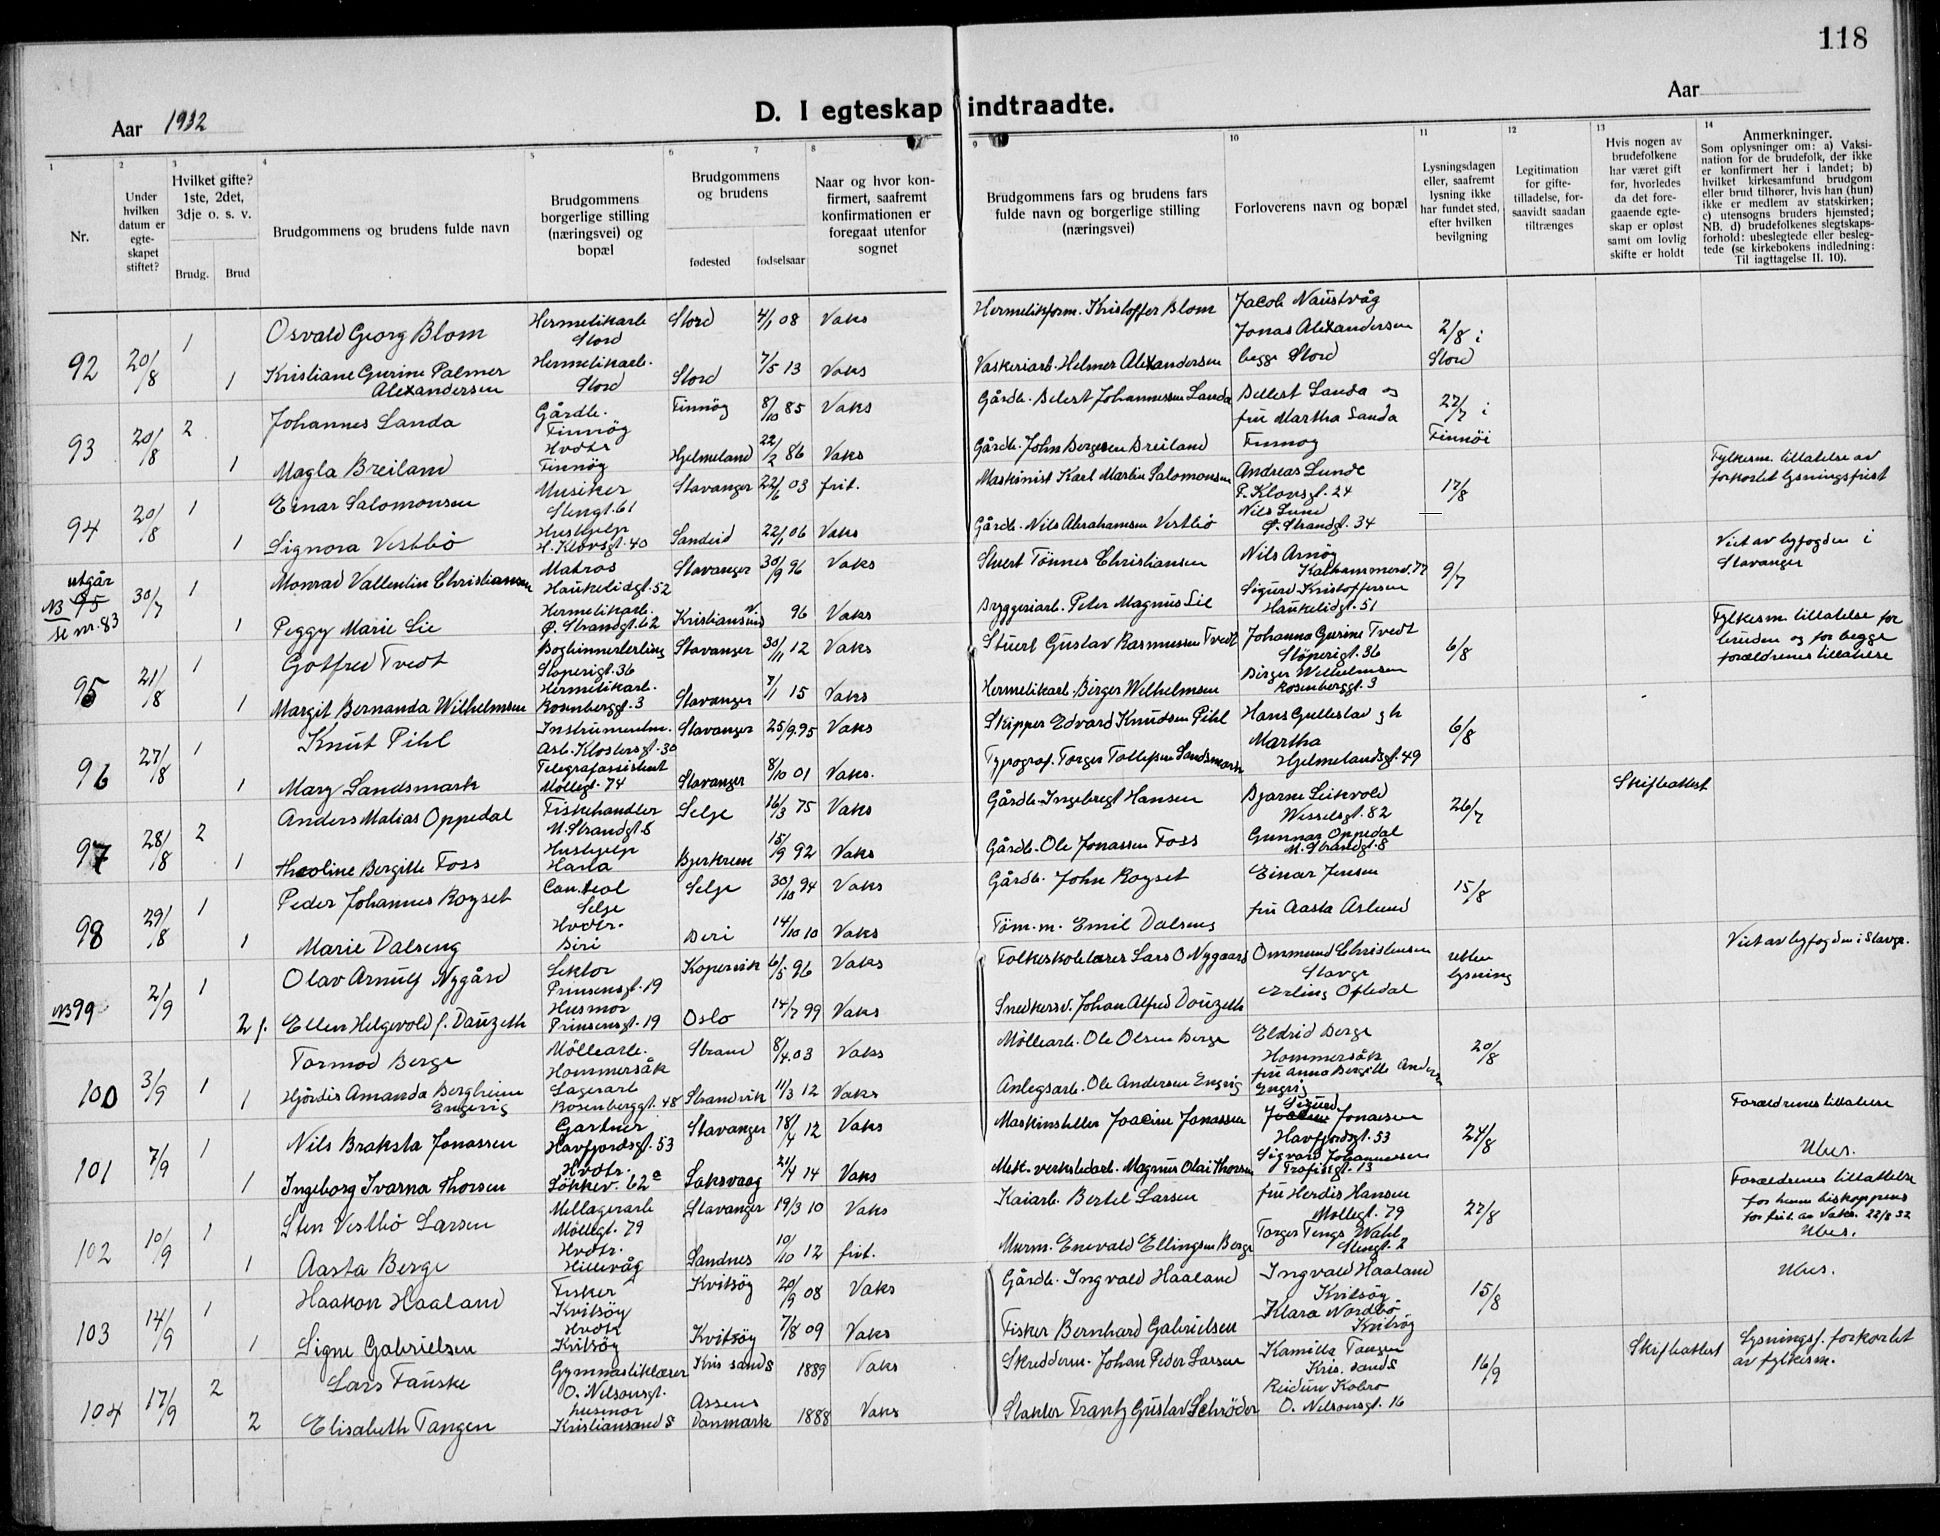 118
Aar 1932
D. I egteskap indtraadte.
Aar
1 2 3 4 5 6 7 8 9 10 11 12 13 14
Nr.
Under hvilken datum er egte-skapet stiftet?
Hvilket gifte? 1ste, 2det, 3dje o. s. v.
Brudg. Brud
Brudgommens og brudens fulde navn
Brudgommens borgerlige stilling (næringsvei) og bopæl
Brudgommens og brudens
fødested fødselsaar
Naar og hvor kon-firmert, saafremt konfirmationen er foregaat utenfor sognet
Brudgommens fars og brudens fars fulde navn og borgerlige stilling (næringsvei)
Forloverens navn og bopæl
Lysningsdagen eller, saafremt lysning ikke har fundet sted, efter hvilken bevilgning
Legitimation for gifte-tilladelse, for-saavidt saadan tiltrænges
Hvis nogen av brudefolkene har været gift før, hvorledes da det fore-gaaende egte-skap er opløst samt om lovlig skifte er holdt
Anmerkninger.
Som oplysninger om: a) Vaksi-nation for de brudefolk, der ikke er konfirmert her i landet; b) hvilket kirkesamfund brudgom eller brud tilhører, hvis han (hun) ikke er medlem av statskirken; c) utensogns bruders hjemsted; NB. d) brudefolkenes slegtskaps-forhold: ubeslegtede eller besleg-tede (se kirkebokens indledning: Til iagttagelse II. 10).
92 20/8 1 Osvald Georg Blom Hermetikarb Stord Stord 4/1 08 Vaks Hermetikform. Kristoffer Blom Jacob Naustvåg Jonas Alexandersen 2/8 i
1 Kristiane Gurine Palmer Alexandersen Hermetikarb. Stord Stord 7/5 13 Vaks Vaskeriarb. Helmer Alexandersen begge Stord Stord
93 20/8 2 Johannes Landa Gårdb. Finnöy Finnöy 8/10 85 Vaks Gårdb. Delest Johannessen Landa Dellest Landa og fru Martha Landa 22/7 i
1 Magla Breiland Hvdtr Finnöy Hjelmeland 22/2 86 Vaks Gårdb. John Bergesen Breiland Finnoy Finnöi
94 20/8 1 Einar Salomonsen Musiker Stengt. 61 Stavanger 22/6 03 frit. Maskinist Karl Martin Salomonsen Andreas Lunde P. Klowsgt. 24 17/8 Fylkesm. tillatelse av forkortet lysningsfrist
1 Signora Vestbö Hushjelp H. Klowsgt. 40 Sandeid 22/1 06 Vaks Gårdb. Nils Abrahamsen Vestbö Nils Lund Ø. Strandgt. 34
utgår NB 95 se nr. 83 30/7 1 Monrad Vallentin Christiansen Matros Haukelidgt. 52 Stavanger 30/9 96 Vaks Stuert Tönnes Christiansen Nils Arnöy Kalhammerv. 77 9/7 Viet av byfogden i Stavanger
1 Peggy Marie Lie Hermetikarb. Ø. Strandgt. 62 Kristiansund N 96 Vaks Bryggeriarb. Peter Magnus Lie Sigurd Kristoffersen Haukelidgt. 51
95 21/8 1 Gotfred Tvedt Bogbinnerlerling Stoperigt. 36 Stavanger 30/11 12 Vaks Stuert Gustav Rasmussen Tvedt Johanna Gurine Tvedt Stöperigt. 36 6/8 Fylkesm. tillatelse for bruden og for begge forældrenes tillatelse
1 Margit Bernanda Wilhelmsen Hermetikarb. Rosenberggt. 3 Stavanger 7/1 15 Vaks Hermetikarb. Birger Wilhelmsen Birger Wilhelmsen Rosenberggt. 3
96 27/8 1 Knut Pihl Instrumentm. Asb. Klostersgt. 30 Stavanger 25/9.95 Vaks Skipper Edvard Knudsen Pihl Hans Gullestad gh Martha 6/8
1 Mary Sandsmark Telegrafassistent Möllegt. 74 Stavanger 8/10 01 Vaks. Typograf. Torger Tollefsen Sandsmark Hjelmelandsgt. 49
97 28/8 2 Anders Matias Oppedal Fiskehandler N. Strandgt 8 Selje 16/3 75 Vaks Gårdb. Ingebregt Hansen Bjarne Leikvold Wesselsgt. 82 26/7 Skifteattest
1 Theoline Bergitte Foss Hushjelp Hana Bjerkreim 15/9 92 Vaks Gårdb. Ole Jonassen Foss Gunnar Oppedal N. Strandgt. 8
98 29/8 1 Peder Johannes Royset Cand.teol Selje Selje 30/10 94 Vaks Gårdb. John Royset Einar Jensen 15/8
1 Marie Dalseng Hvdtr. Biri Biri 14/10 10 Vaks Töm.m. Emil Dalseng fru Aasta Aslund
NB 99 2/9 1 Olav Arnulf Nygård Lektor Prinsensgt. 19 Kopervik 6/5 96 Vaks Folkeskolelærer Lars O Nygaard Ommund Christensen Stavgr uten lysning Viet av byfogden i Stavgr.
2 f. Ellen Helgevold f. Dauzeth Husmor Prinsensgt. 19 Oslo 14/7 99 Vaks Snedkersv. Johan Alfred Douzeth Erling Oftedal
100 3/9 1 Tormod Berge Möllearb. Hommersåk Strand 8/4.03 Vaks Möllearb. Ole Olsen Berge Eldrid Berge Hommersåk 20/8
1 Hjördis Amanda Bergheim Engevig Lagerarb Rosenberggt. 48 Strandvik 11/3 12 Vaks Anlegsarb. Ole Andersen Engvig fru Anna Bergitte Anders Engvig
101 7/9 1 Nils Braksta Jonassen Gartner Havfjordsgt. 53 Stavanger 18/4 12 Vaks Maskinstiller Joacim Jonassen Sigurd Jonassen Havfjordsgt. 53 24/8 Forældrenes tillatelse
1 Ingeborg Ivarna Thorsen Hvdtr. Løkkev. 62a Laksvaag 21/4 14 Vaks Mek. verkstedarb. Magnus Olai Thorsen Sigvard Johannessen Trofastgt. 13 Ubes.
102 10/9 1 Sten Vestbö Larsen Mellagerarb Möllegt. 79 Stavanger 19/3 10 Vaks Kaiarb. Bertel Larsen fru Herdis Hansen Möllegt. 79 27/8 Forældrenes tillatelse for henne biskoppens for frit. av Vaks. 22/8 32 Ubes.
1 Aasta Berge Hvdtr. Hillevåg Sandnes 10/10 12 frit. Murm. Enevald Ellingsen Berge Torger Tengs Wahl Stengt. 2
103 14/9 1 Haakon Haaland Fisker Kvitsöy Kvitsöy 20/9 08 Vaks Gårdb. Ingvald Haaland Ingvald Haaland Kvitsöy 15/8 Ubes.
1 Signe Gabrielsen Hvdtr Kvitsöy Kvitsöy 7/8 09 Vaks Fisker Bernhard Gabrielsen Klara Nordbö Kvitsöy
104 17/9 2 Lars Fauske Gymnastiklærer O. Nilsonsgt. Kris sand S 1889 Vaks Skredderm. Johan Peder Larsen Kamilla Tangen Kris. sand S 16/9 Skifteattest Lysningsf. forkortet av fylkesm.
2 Elisabeth Tangen husmor Kristiansand S Assens Danmark 1888 Vaks Slakter Frantz Gustav Schröder Reidun Kobro O. Nilsonsgt. 16